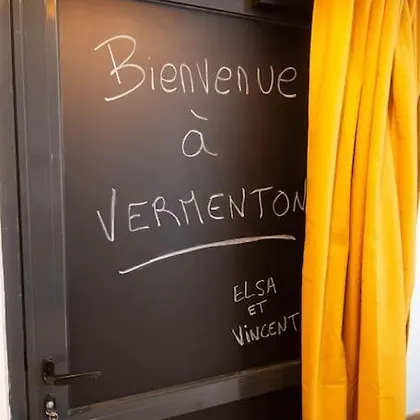 Bienvenue
à
VERMENTON
ELSA
ET
VINCENT